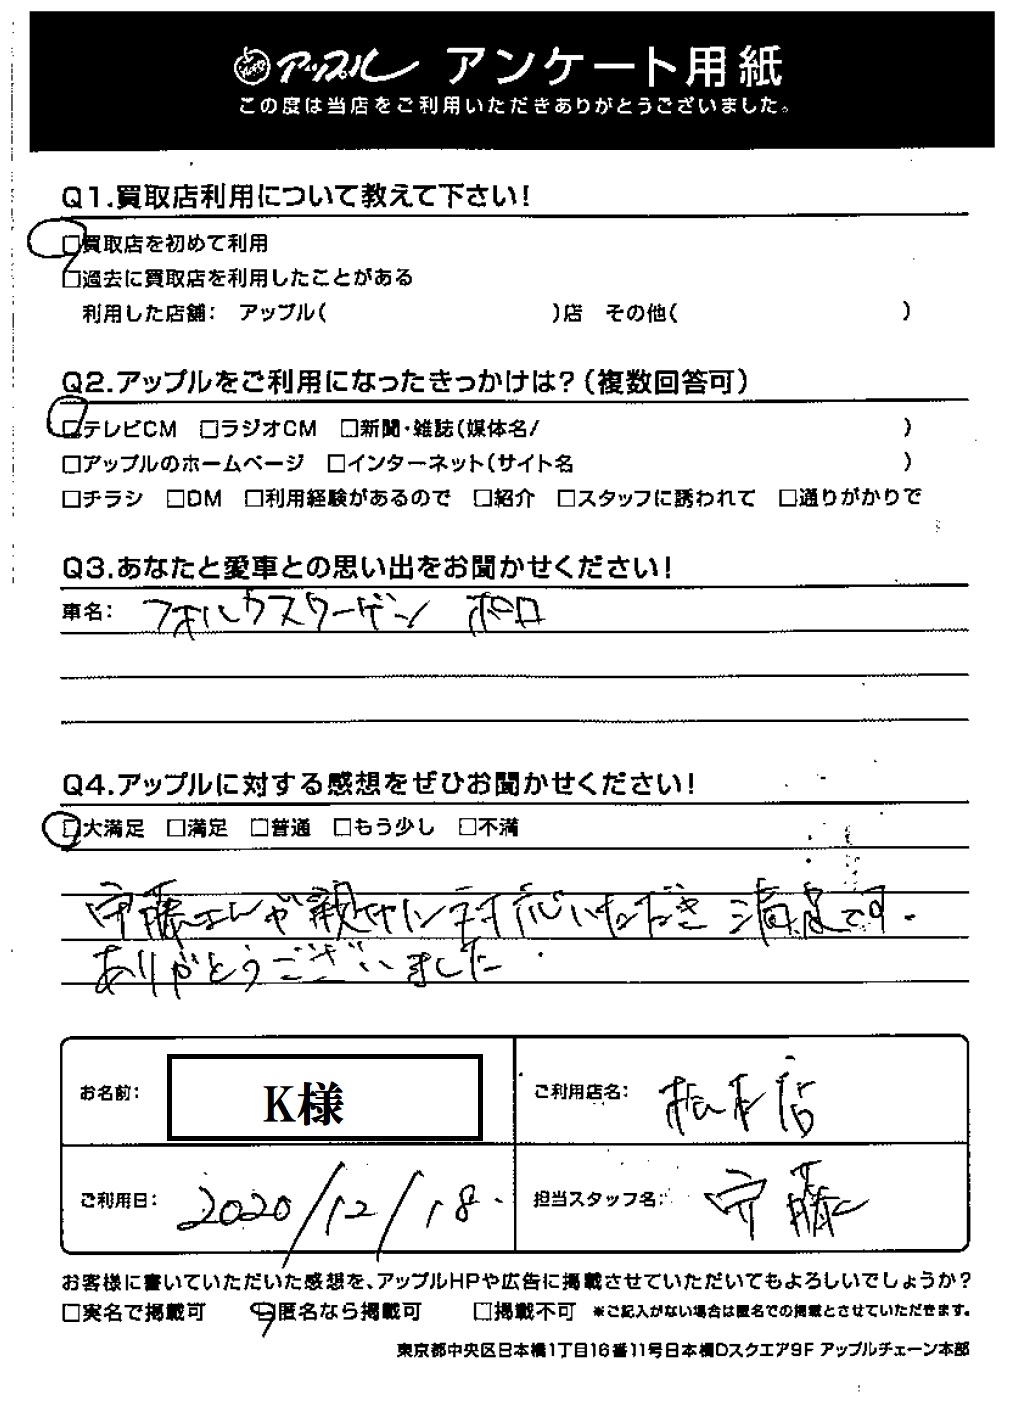 アップル アンケート用紙
この度は当店をご利用いただきありがとうございました。
Q1.買取店利用について教えて下さい!
□買取店を初めて利用
□過去に買取店を利用したことがある
利用した店舗: アップル( )店 その他( )
Q2.アップルをご利用になったきっかけは?(複数回答可)
□テレビCM □ラジオCM □新聞・雑誌(媒体名/ )
□アップルのホームページ □インターネット(サイト名 )
□チラシ □DM □利用経験があるので □紹介 □スタッフに誘われて □通りがかりで
Q3.あなたと愛車との思い出をお聞かせください!
車名: フォルクスワーゲン ポロ
Q4.アップルに対する感想をぜひお聞かせください!
□大満足 □満足 □普通 □もう少し □不満
対応いただき 満足です.
ありがとうございました
お名前: K様
ご利用店名: 松本店
ご利用日: 2020/12/18.
担当スタッフ名: 守藤
お客様に書いていただいた感想を、アップルHPや広告に掲載させていただいてもよろしいでしょうか?
□実名で掲載可 □匿名なら掲載可 □掲載不可 ※ご記入がない場合は匿名での掲載とさせていただきます。
東京都中央区日本橋1丁目16番11号日本橋Dスクエア9F アップルチェーン本部